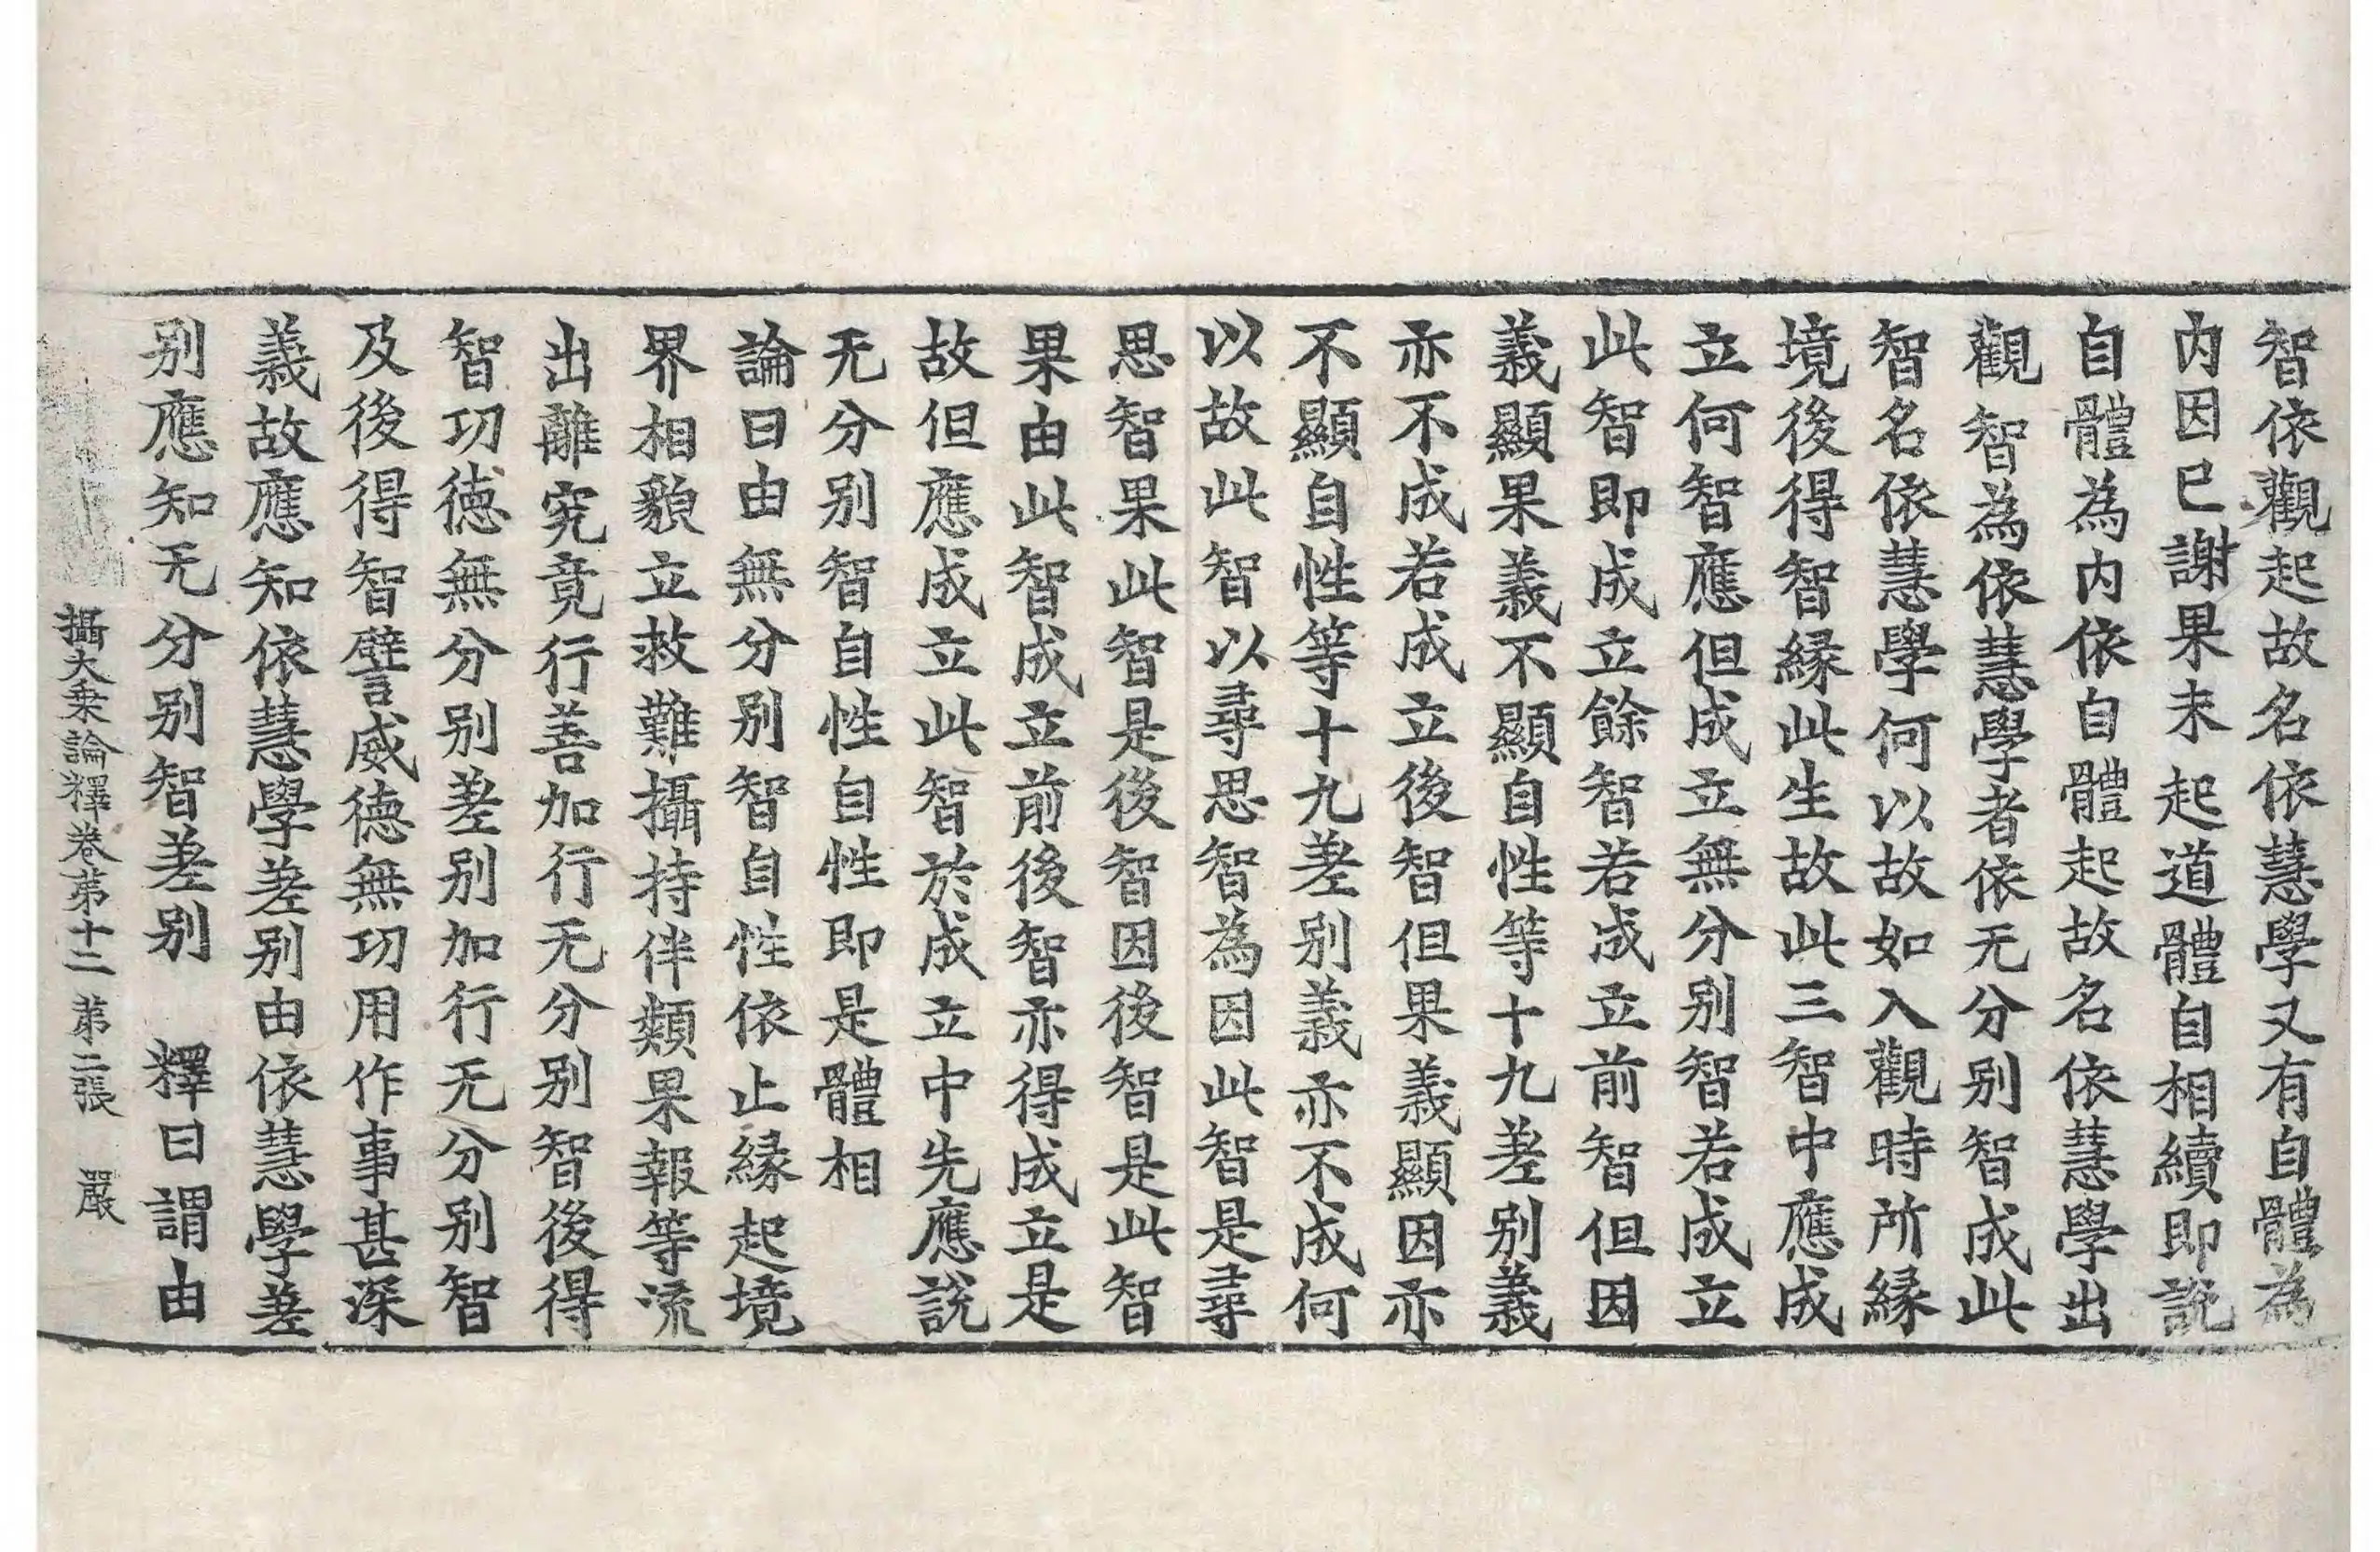 智依觀起故名依慧學又有自體為
内因已謝果未起道體自相續即説
自體為内依自體起故名依慧學出
觀智為依慧學者依无分别智成此
智名依慧學何以故如入觀時所緣
境後得智緣此生故此三智中應成
立何智應但成立無分别智若成立
此智即成立餘智若成立前智但因
義顯果義不顯自性等十九差别義
亦不成若成立後智但果義顯因亦
不顯自性等十九差别義亦不成何
以故此智以尋思智為因此智是尋
思智果此智是後智因後智是此智
果由此智成立前後智亦得成立是
故但應成立此智於成立中先應説
无分别智自性自性即是體相
論曰由無分别智自性依止緣起境
界相貌立救難攝持伴類果報等流
出離究竟行善加行无分别智後得
智功德無分别差别加行无分别智
及後得智譬威德無功用作事甚深
義故應知依慧學差别由依慧學差
别應知无分别智差别　釋曰謂由
攝大乗論釋卷苐十二　苐二張　嚴